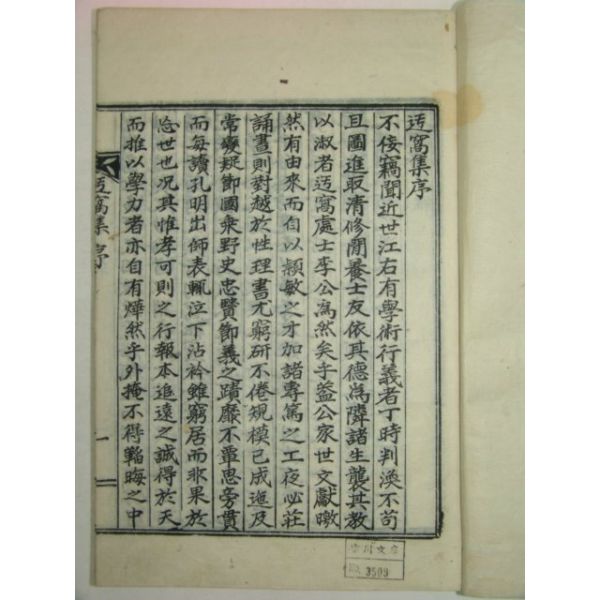 迃窩集序
不佞竊聞近世江右有學術行義者丁時判渙不苟
且圖進取淸修閒養士友依其德爲隣諸生襲其敎
以淑者迃窩處士李公爲然矣乎益公家世文獻暾
然有由來而自以穎敏之才加諸專篤之工夜必莊
誦晝則對越於性理書尤窮研不倦規模已成迤及
常變疑節國乘野史忠賢節義之蹟靡不覃思旁貫
而每讀孔明出師表輒泣下沾衿雖窮居而非果於
忘世也況其惟孝可則之行報本追遠之誠得於天
而推以學力者亦自有燁然乎外掩不得韜晦之中
迃窩集 序
一
文庫
NO. 3509